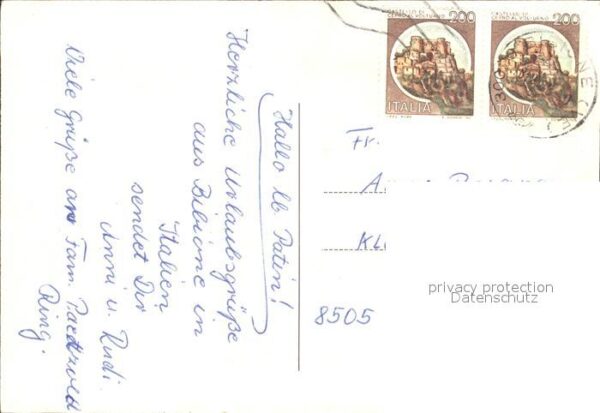 Hallo lb Patin!
Herzliche Urlaubsgrüße
aus Bibione in
Italien
sendet Dir
Anni u. Rudi.
Viele Grüße an Fam.
Ring.
CASTELLO DI
CERRO AL VOLTURNO
200
ITALIA
CASTELLO DI
CERRO AL VOLTURNO
200
ITALIA
Fr.
8505
privacy protection
Datenschutz